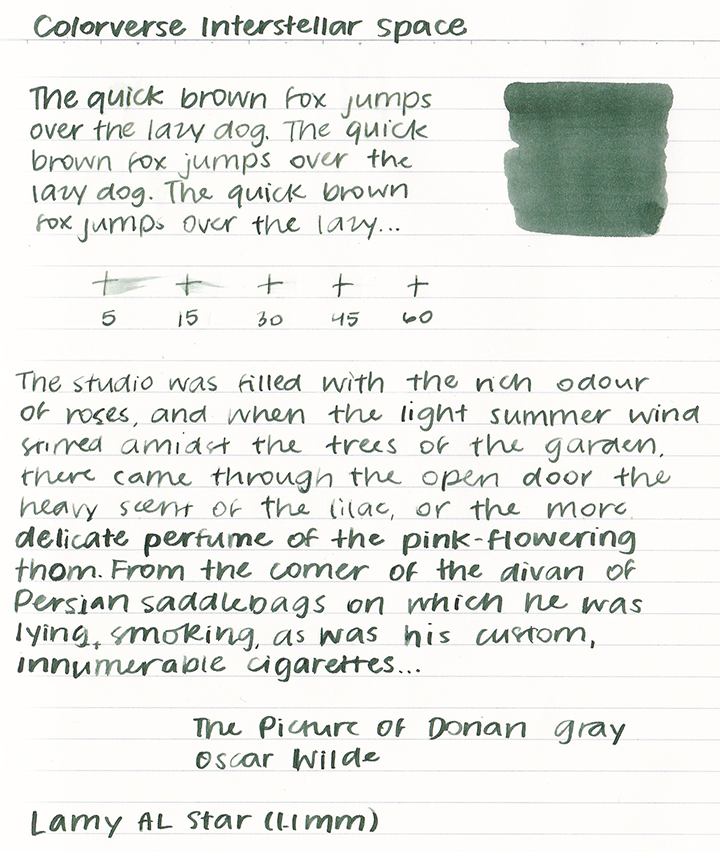 Colorverse Interstellar Space
The quick brown fox jumps
over the lazy dog. The quick
brown fox jumps over the
lazy dog. The quick brown
fox jumps over the lazy...
+ + + + +
5 15 30 45 60
The studio was filled with the rich odour
of roses, and when the light summer wind
stirred amidst the trees of the garden,
there came through the open door the
heavy scent of the lilac, or the more
delicate perfume of the pink-flowering
thorn. From the corner of the divan of
Persian saddlebags on which he was
lying, smoking, as was his custom,
innumerable cigarettes...
The Picture of Dorian Gray
Oscar Wilde
Lamy AL Star (1.1mm)